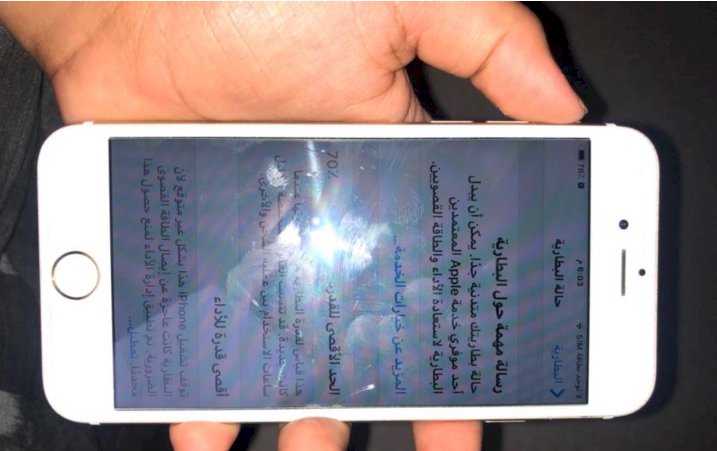 لا توجد بطاقة SIM 6:03 م 78٪
البطارية حالة البطارية
رسالة مهمة حول البطارية
حالة بطاريتك متدنية جدًا. يمكن أن يبدل
أحد موفري خدمة Apple المعتمدين
البطارية لاستعادة الأداء والطاقة القصويين.
المزيد عن خيارات الخدمة...
الحد الأقصى للقدرة 70٪
هذا قياس لقدرة البطارية عندما
كانت جديدة. قد تتسبب
ساعات الاستخدام بين والأخرى.
أقصى قدرة للأداء
توقف تشغيل iPhone هذا بشكل غير متوقع لأن
البطارية كانت عاجزة عن إيصال الطاقة القصوى
الضرورية. تم تطبيق إدارة الأداء لمنع حصول هذا
مجددًا. تعطيل...